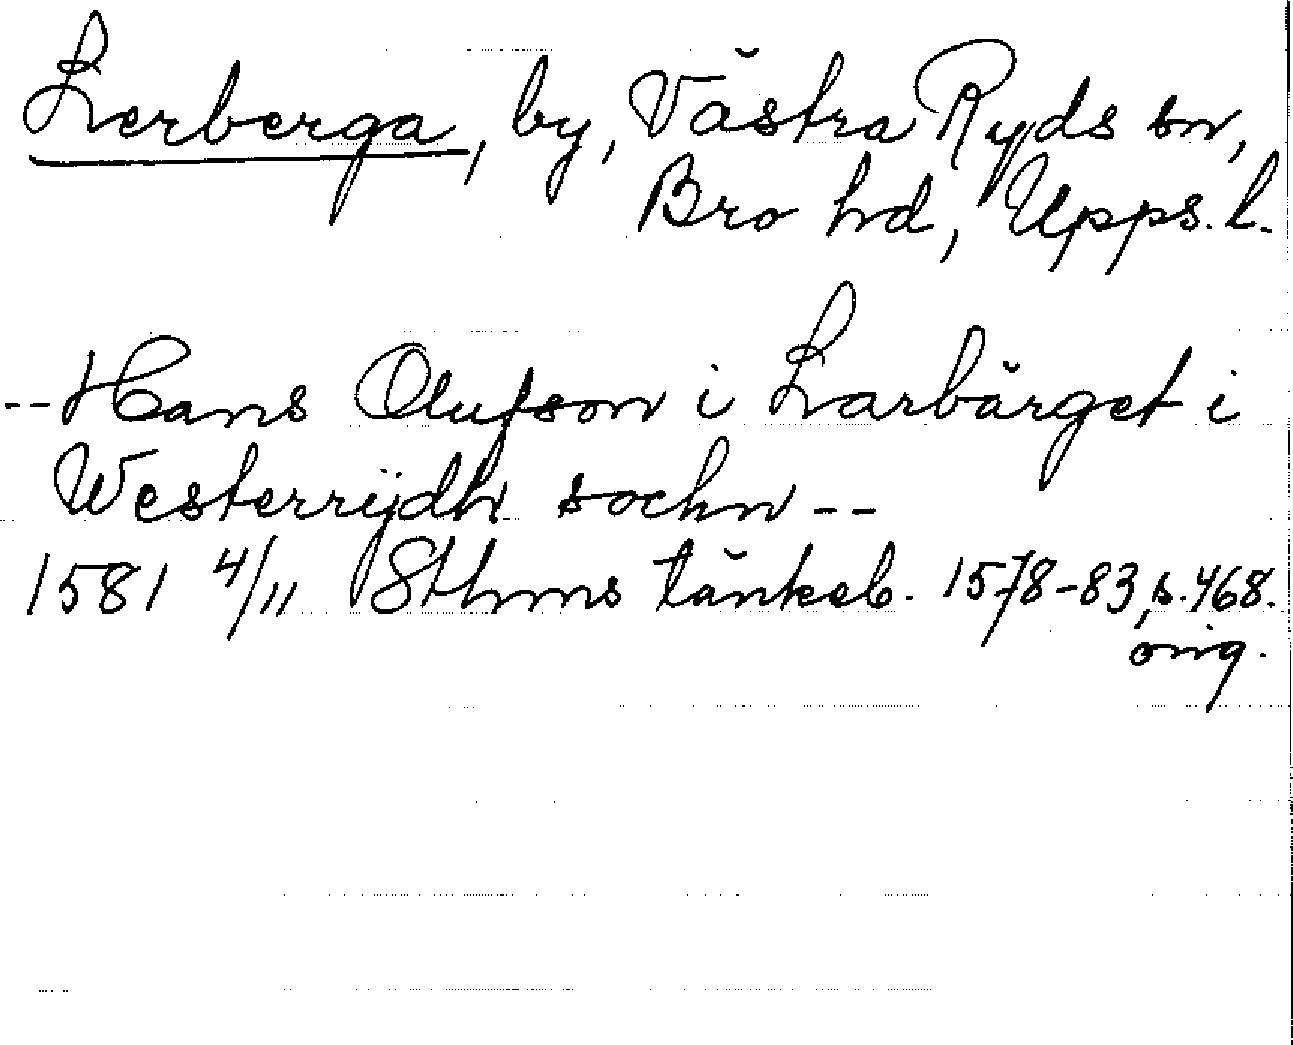 Lerberga, by, Västra Ryds sn,
Bro hd, Upps. l.
-- Hans Olufson i Larbärget i
Westerrÿdh sochn --
1581 4/11 Sthms tänkeb. 1578-83, s. 468.
orig.